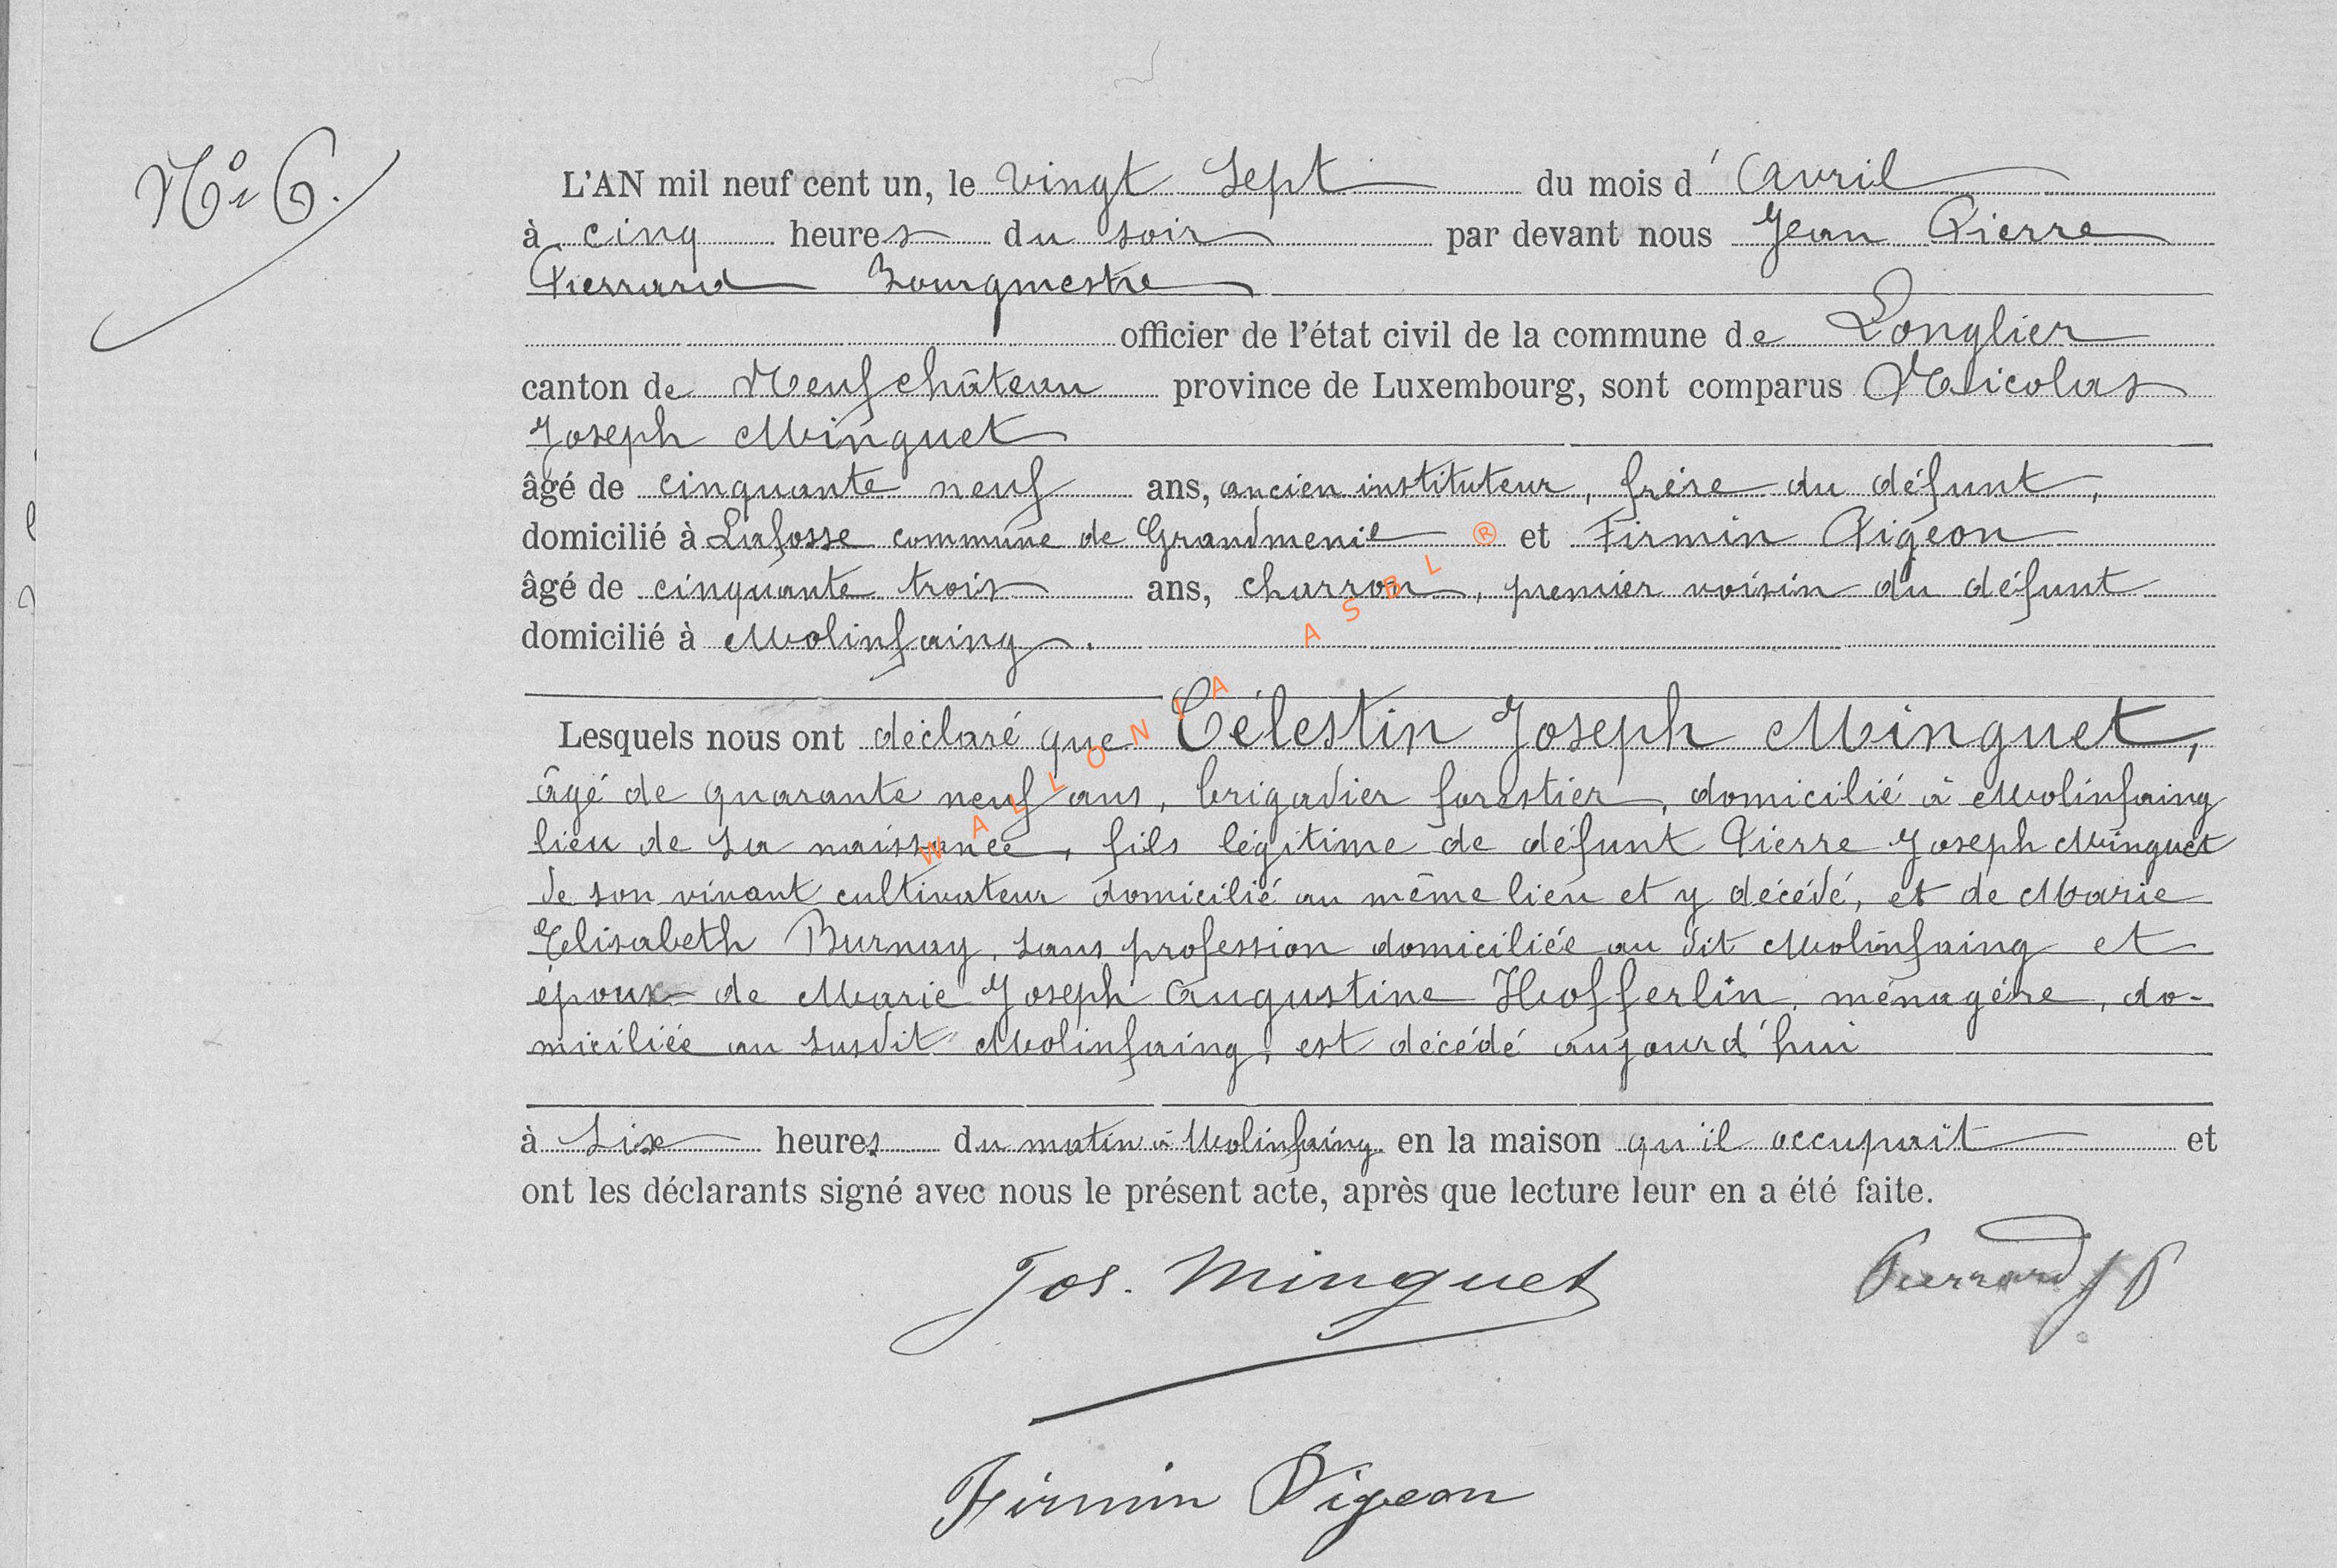 N° 6.
L'AN mil neuf cent un, le vingt sept du mois d'Avril
à cinq heures du soir par devant nous Jean Pierre
Pierrard Bourgmestre
officier de l'état civil de la commune de Longlier
canton de Neufchâteau province de Luxembourg, sont comparus Nicolas
Joseph Minguet
âgé de cinquante neuf ans, ancien instituteur, frère du défunt,
domicilié à Lafosse commune de Grandmenil et Firmin Pigeon
âgé de cinquante trois ans, charron, premier voisin du défunt
domicilié à Molinfaing.
Lesquels nous ont déclaré que Célestin Joseph Minguet,
âgé de quarante neuf ans, brigadier forestier, domicilié à Molinfaing
lieu de sa naissance, fils légitime de défunt Pierre Joseph Minguet
de son vivant cultivateur domicilié au même lieu et y décédé, et de Marie
Elisabeth Burnay, sans profession domiciliée au dit Molinfaing et
époux de Marie Joseph Augustine Hofferlin, ménagère, do-
miciliée au susdit Molinfaing, est décédé aujourd'hui
à six heures du matin à Molinfaing en la maison qu'il occupait et
ont les déclarants signé avec nous le présent acte, après que lecture leur en a été faite.
Jos. Minguet Pierrard JP
Firmin Pigeon
WALLONIA ASBL ®